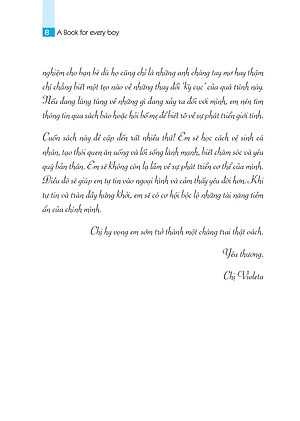 8 A Book for every boy
nghiệm cho bạn bè dù họ cũng chỉ là những anh chàng tay mơ hay thậm
chí chẳng biết một tẹo nào về những thay đổi "kỳ cục" của quá trình này.
Nếu đang lúng túng về những gì đang xảy ra đối với mình, em nên tìm
thông tin qua sách báo hoặc hỏi bố mẹ để biết rõ về sự phát triển giới tính.
Cuốn sách này đề cập đến rất nhiều thứ! Em sẽ học cách vệ sinh cá
nhân, tạo thói quen ăn uống và lối sống lành mạnh, biết chăm sóc và yêu
quý bản thân. Em sẽ không còn lạ lẫm về sự phát triển cơ thể của mình.
Điều đó sẽ giúp em tự tin vào ngoại hình và cảm thấy yêu đời hơn. Khi
tự tin và tràn đầy hứng khởi, em sẽ có cơ hội bộc lộ những tài năng tiềm
ẩn của chính mình.
Chị hy vọng em sớm trở thành một chàng trai thật oách.
Yêu thương,
Chị Violeta